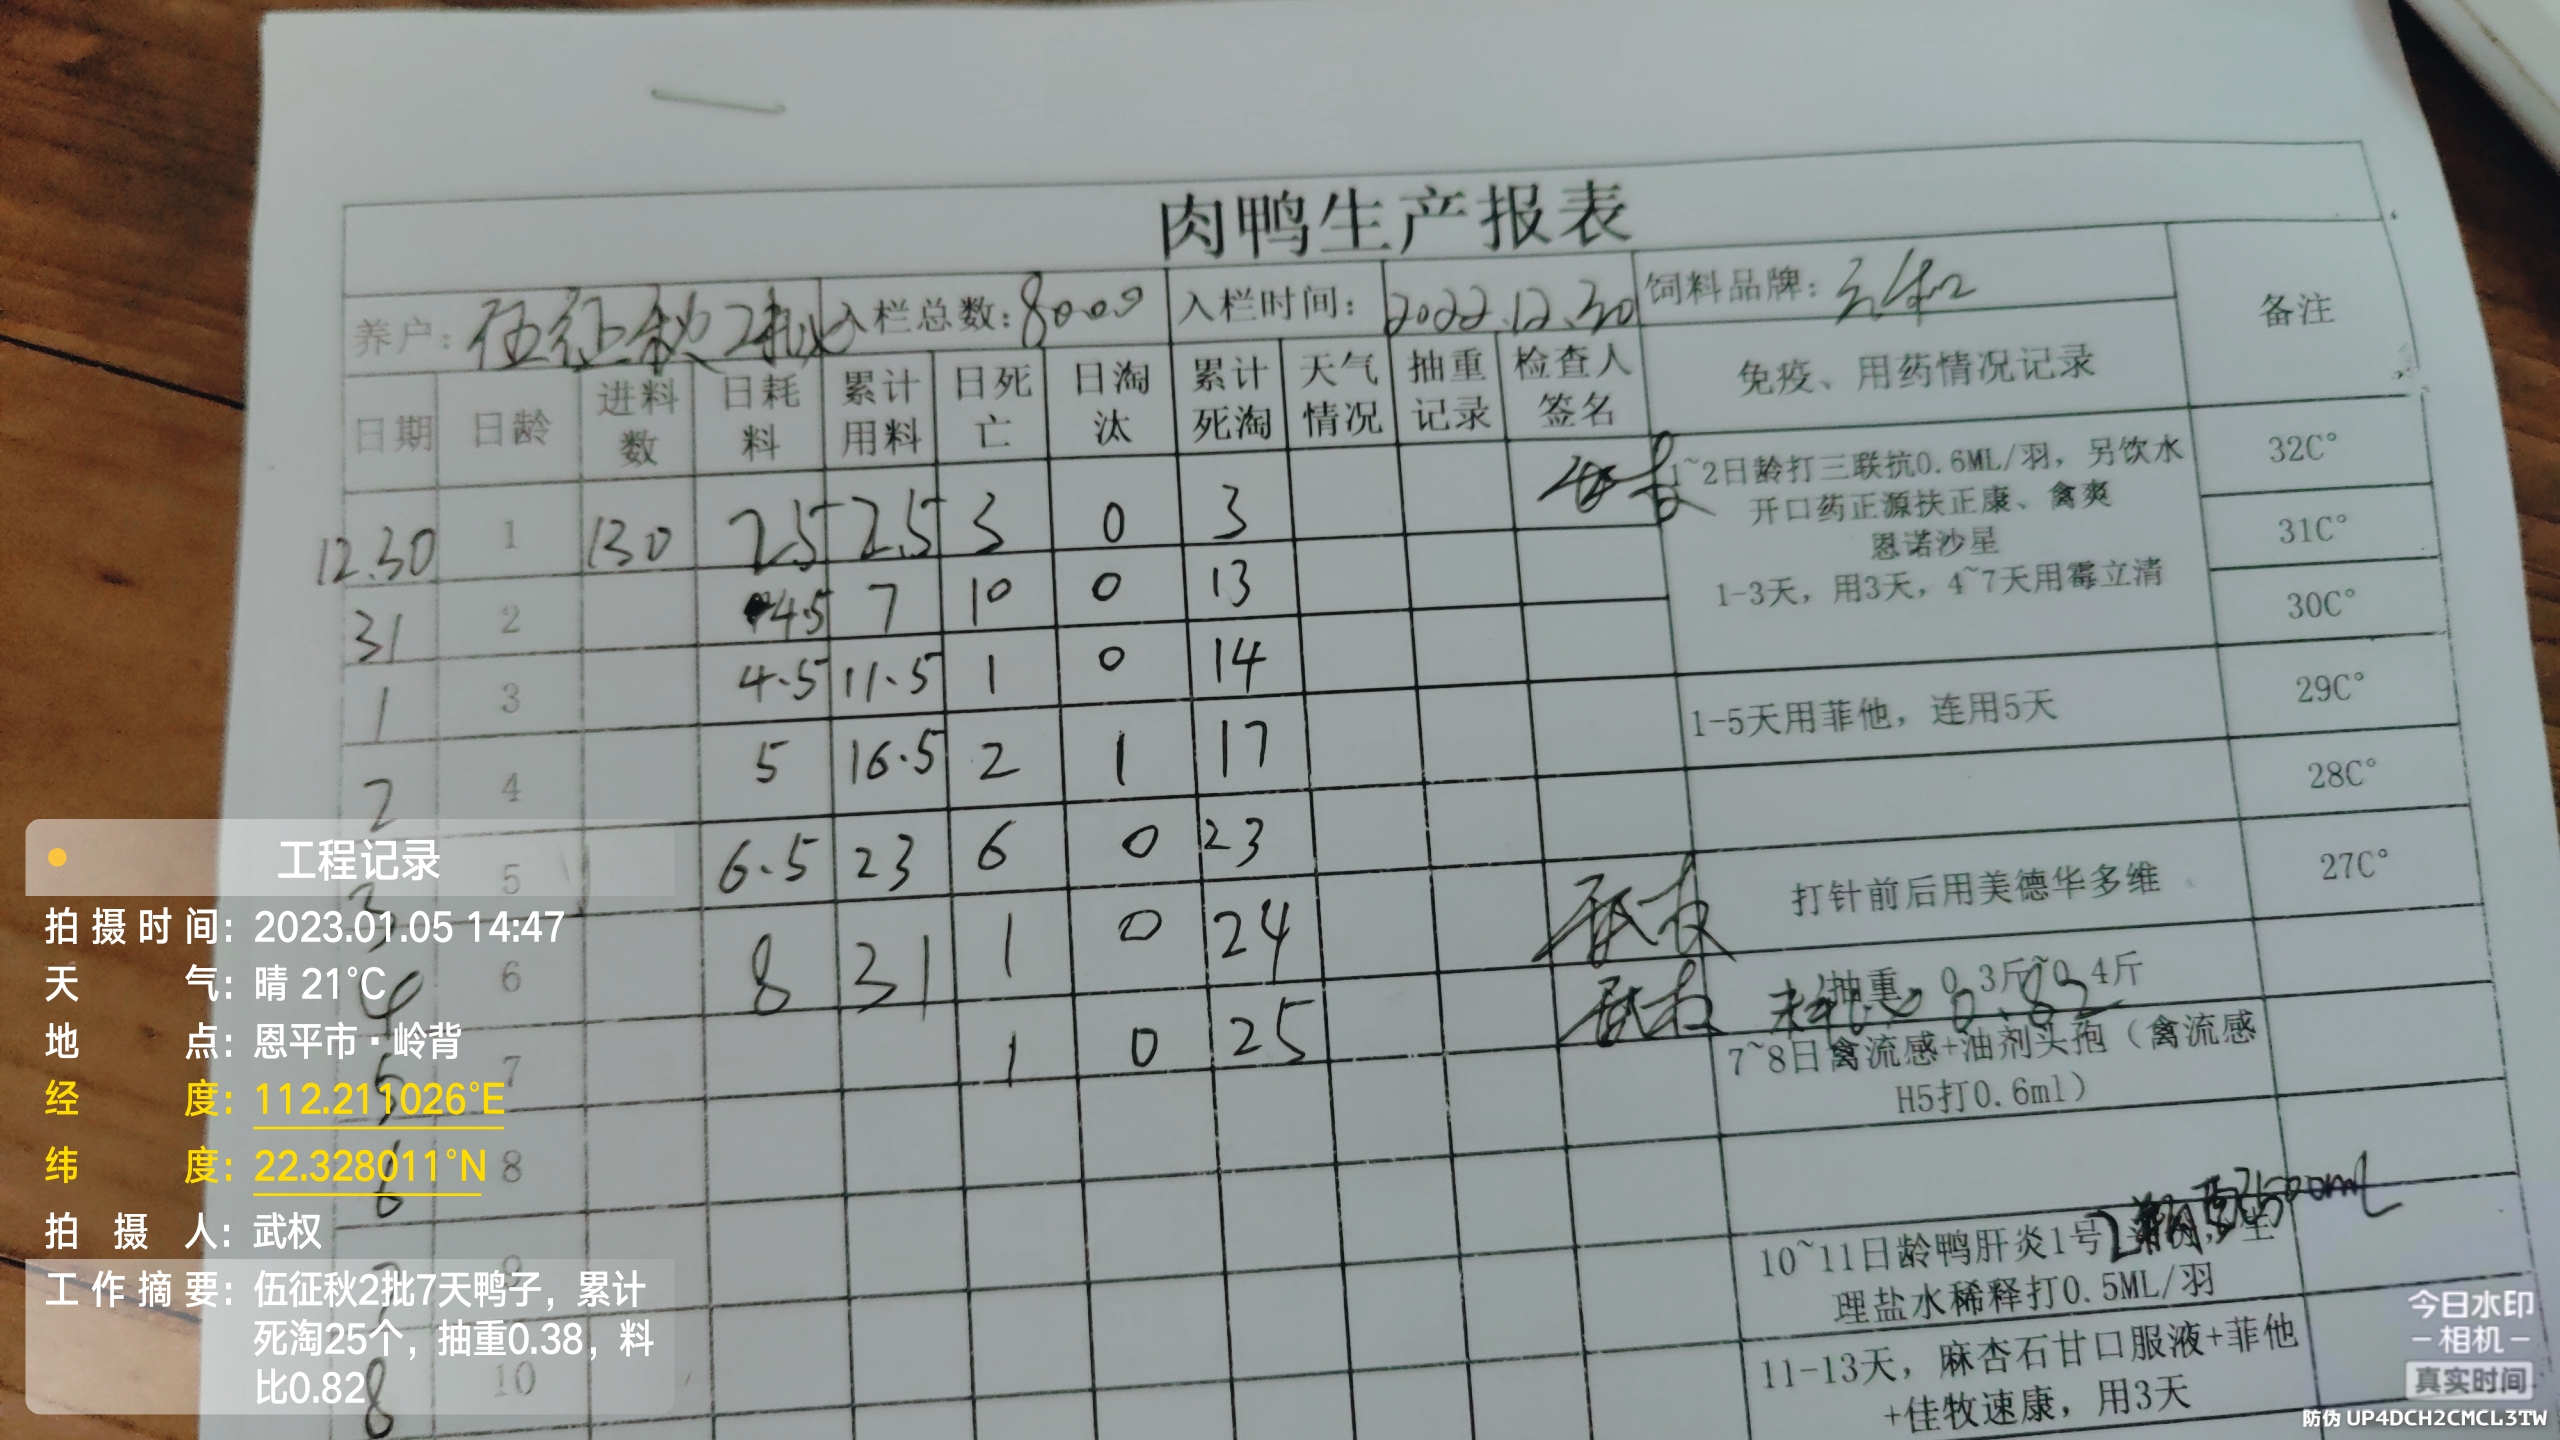 肉鸭生产报表
养户：伍征秋2批 入栏总数：8000 入栏时间：2022.12.30 饲料品牌： 备注
日期 日龄 进料数 日耗料 累计用料 日死亡 日淘汰 累计死淘 天气情况 抽重记录 检查人签名 免疫、用药情况记录
12.30 1 130 2.5 2.5 3 0 3
31 2 4.5 7 10 0 13
1 3 4.5 11.5 1 0 14
2 4 5 16.5 2 1 17
3 5 6.5 23 6 0 23
4 6 8 31 1 0 24
5 7 1 0 25
6 8
9
8 10
1~2日龄打三联抗0.6ML/羽，另饮水
开口药正源扶正康、禽爽
恩诺沙星
1-3天，用3天，4~7天用霉立清
1-5天用菲他，连用5天
打针前后用美德华多维
抽重：0.3斤~0.4斤
料比 0.82
7~8日禽流感+油剂头孢（禽流感
H5打0.6ml）
10~11日龄鸭肝炎1号
理盐水稀释打0.5ML/羽
11-13天，麻杏石甘口服液+菲他
+佳牧速康，用3天
32C°
31C°
30C°
29C°
28C°
27C°
工程记录
拍摄时间：2023.01.05 14:47
天气：晴 21℃
地点：恩平市·岭背
经度：112.211026°E
纬度：22.328011°N
拍摄人：武权
工作摘要：伍征秋2批7天鸭子，累计
死淘25个，抽重0.38，料
比0.82
今日水印
-相机-
真实时间
防伪 UP4DCH2CMCL3TW